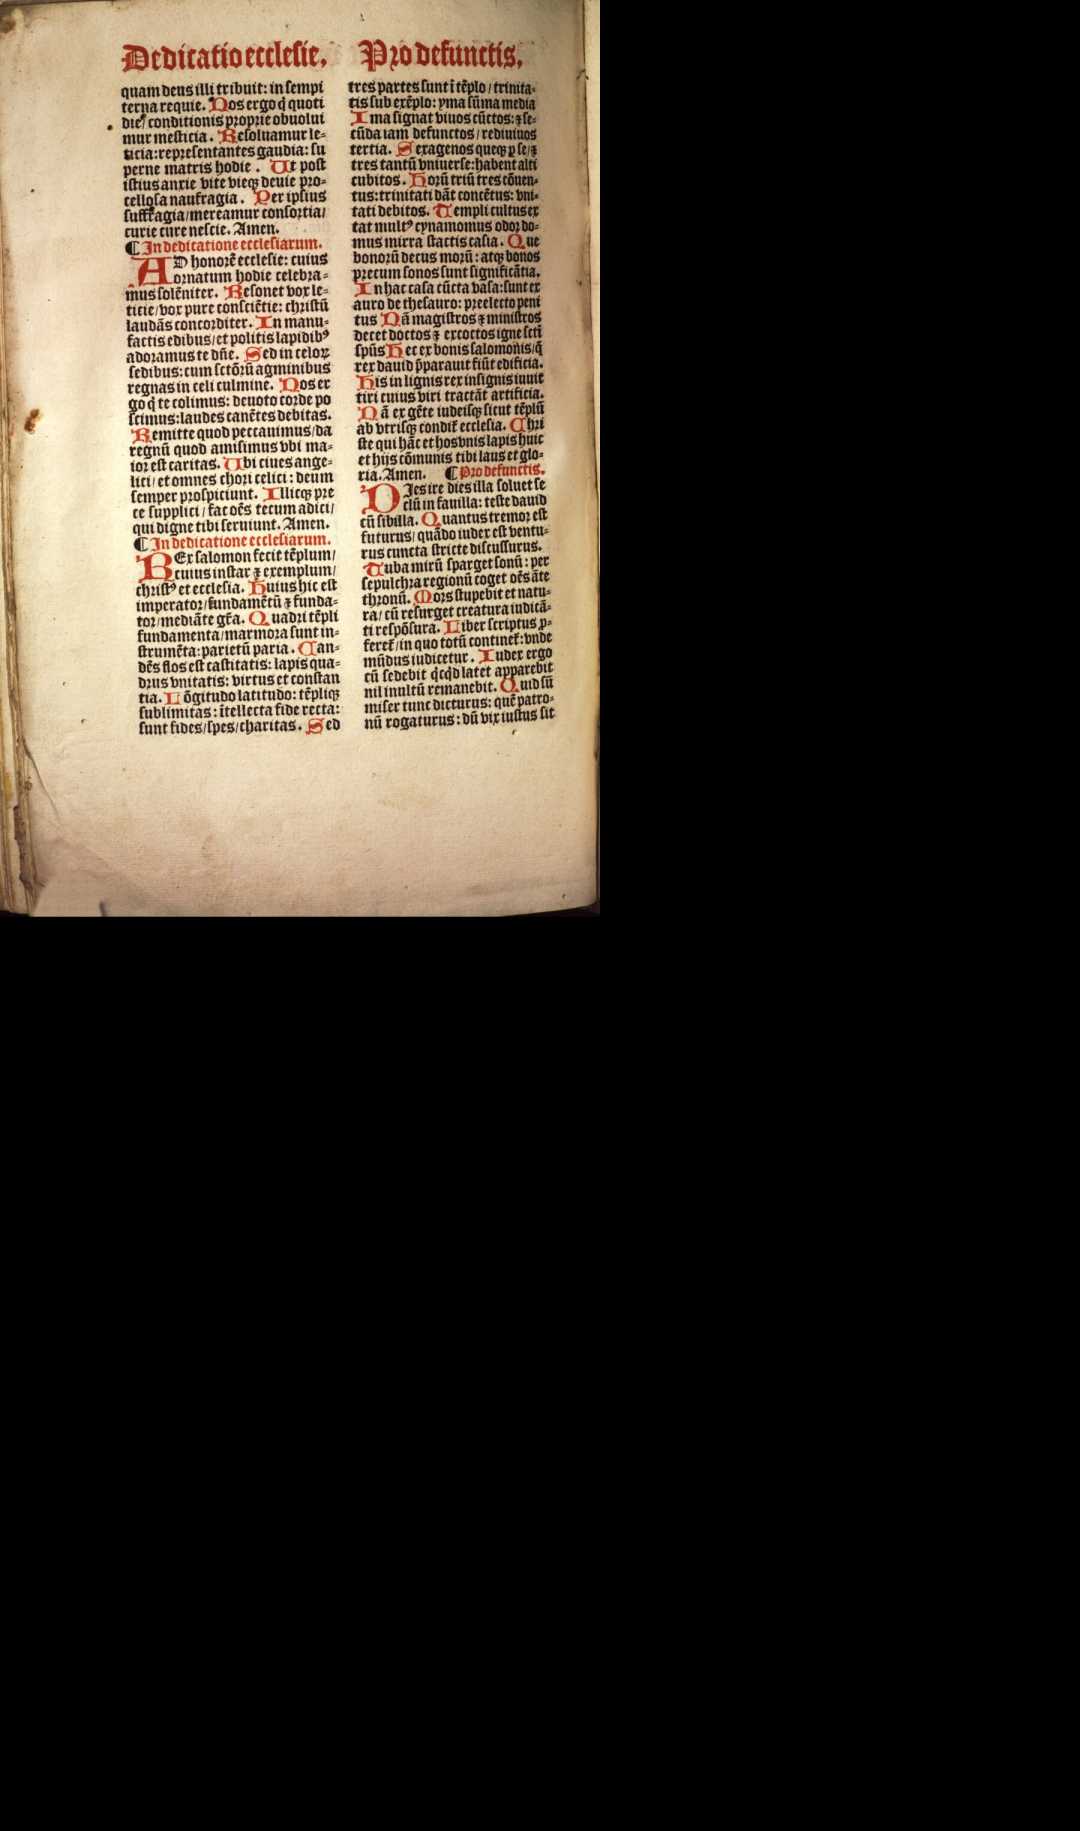 Dedicatio ecclesie.
quam deus illi tribuit: in sempi
terna requie. Nos ergo q̄ quoti
die/ conditionis proprie obuolui
mur mesticia. Resoluamur le-
ticia: representantes gaudia: su
perne matris hodie. Ut post
istius anxie vite vieqȝ deuie pro-
cellosa naufragia. Per ipsius
suffragia/mereamur consortia/
curie cure nescie. Amen.
¶ In dedicatione ecclesiarum.
AD honorē ecclesie: cuius
ornatum hodie celebra-
mus solēniter. Resonet vox le-
ticie/vox pure consciētie: christū
laudās concorditer. In manu-
factis edibus/et politis lapidibꝰ
adoramus te dn̄e. Sed in celoꝝ
sedibus: cum sctōrū agminibus
regnas in celi culmine. Nos er
go q̄ te colimus: deuoto corde po
scimus: laudes canētes debitas.
Remitte quod peccauimus/da
regnū quod amisimus vbi ma-
ior est caritas. Ubi ciues ange-
lici/et omnes chori celici: deum
semper prospiciunt. Illicqȝ pre
ce supplici/ fac oēs tecum adici/
qui digne tibi seruiunt. Amen.
¶ In dedicatione ecclesiarum.
REx salomon fecit tēplum/
cuius instar ⁊ exemplum/
christꝰ et ecclesia. Huius hic est
imperator/fundamētū ⁊ funda-
tor/mediāte gr̄a. Quadri tēpli
fundamenta/marmora sunt in-
strumēta: parietū paria. Can-
dēs flos est castitatis: lapis qua-
drus vnitatis: virtus et constan
tia. Lōgitudo latitudo: tēpliqȝ
sublimitas: ītellecta fide recta:
sunt fides/spes/charitas. Sed
Pro defunctis.
tres partes sunt ī tēplo/trinita-
tis sub exēplo: yma sūma media
Ima signat viuos cūctos: ⁊ se-
cūda iam defunctos/rediuiuos
tertia. Sexagenos queqȝ ꝑ se/⁊
tres tantū vniuerse: habent alti
cubitos. Horū triū tres cōuen-
tus: trinitati dāt concētus: vni-
tati debitos. Templi cultus ex
tat multꝰ cynamomus odor do-
mus mirra stactis casia. Que
bonorū decus morū: atqȝ bonos
precum sonos sunt significātia.
In hac casa cūcta vasa: sunt ex
auro de thesauro: preelecto peni
tus Nā magistros ⁊ ministros
decet doctos ⁊ excoctos igne sctī
spūs Hec ex bonis salomonis/q̄
rex dauid p̄parauit fiūt edificia.
His in lignis rex insignis iuuit
tiri cuius viri tractāt artificia.
Nā ex gēte iudeisqȝ sicut tēplū
ab vtrisqȝ condit̄ ecclesia. Chri
ste qui hāc et hos vnis lapis huic
et hijs cōmunis tibi laus et glo-
ria. Amen. ¶ Pro defunctis.
DIes ire dies illa soluet se
clū in fauilla: teste dauid
cū sibilla. Quantus tremor est
futurus/ quādo iudex est ventu-
rus cuncta stricte discussurus.
Tuba mirū sparget sonū: per
sepulchra regionū coget oēs āte
thronū. Mors stupebit et natu-
ra/ cū resurget creatura iudicā-
ti respōsura. Liber scriptus ꝓ-
feret̄/in quo totū continet̄: vnde
mūdus iudicetur. Iudex ergo
cū sedebit q̇cq̇d latet apparebit
nil inultū remanebit. Quid sū
miser tunc dicturus: quē patro-
nū rogaturus: dū vix iustus sit